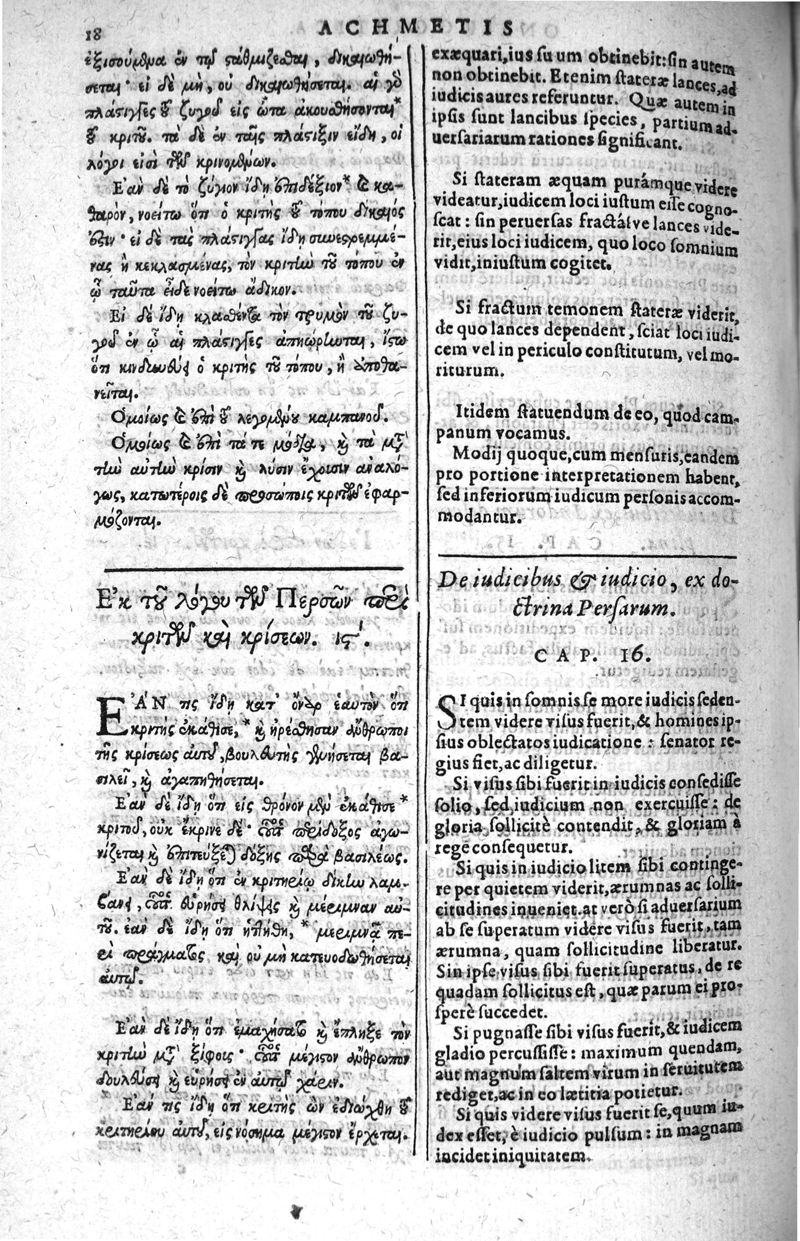 18
ACHMETIS
ἐξισούμενα ἐν τῷ σταθμίζεσθαι, δικαιωθή-
σεται· εἰ δὲ μὴ, οὐ δικαιωθήσεται. αἱ γὸ
πλάστιγγες τοῦ ζυγοῦ εἰς ὦτα ἀκουσθήσονται*
τοῦ κριτοῦ. τὰ δὲ ἐν ταῖς πλάστιξιν εἴδη, οἱ
λόγοι εἰσὶ τῶν κρινομένων.
Ἐὰν δὲ τὸ ζύγιον ἴδῃ ἐπιδέξιον* καὶ κα-
θαρὸν, νοείτω ὅτι ὁ κριτὴς τοῦ τόπου δίκαιός
ἐστιν· εἰ δὲ τὰς πλάστιγγας ἴδῃ συνεστραμμέ-
νας ἢ κεκλασμένας, τὸν κριτὴν τοῦ τόπου ἐν
ᾧ ταῦτα εἶδε νοείτω ἄδικον.
Εἰ δὲ ἴδῃ κλασθέντα τὸν τρυμὸν τοῦ ζυ-
γοῦ ἐν ᾧ αἱ πλάστιγγες ἀπηώρηνται, ἴστω
ὅτι κινδυνεύσει ὁ κριτὴς τοῦ τόπου, ἢ ἀποθα-
νεῖται.
Ὁμοίως καὶ ἐπὶ τοῦ λεγομένου καμπανοῦ.
Ὁμοίως καὶ ἐπὶ τά τε μόδια, καὶ τὰ μέτρα
τὴν αὐτὴν κρίσιν καὶ λύσιν ἔχοισιν ἀναλό-
γως, κατωτέροις δὲ προσώποις κριτῶν ἐφαρ-
μόζονται.
Ἐκ τοῦ λόγου τῶν Περσῶν περὶ
κριτῶν καὶ κρίσεων. ις΄.
ΕΆΝ τις ἴδῃ κατ' ὄναρ ἑαυτὸν ὅτι
κριτὴς ἐκάθισε,* καὶ ἠρέσθησαν ἄνθρωποι
τῆς κρίσεως αὐτοῦ, βουλευτὴς γενήσεται βα-
σιλεῖ, καὶ ἀγαπηθήσεται.
Ἐὰν δὲ ἴδῃ ὅτι εἰς θρόνον μὲν ἐκάθισε*
κριτοῦ, οὐκ ἔκρινε δέ· οὗτος περιδόξως ἀγω-
νίζεται καὶ ἐπιτεύξεται δόξης παρὰ βασιλέως.
Ἐὰν δὲ ἴδῃ ὅτι ἐν κριτηρίῳ δίκην λαμ-
βάνει, οὗτος εὑρήσει θλῖψιν καὶ μέριμναν αὐ-
τοῦ. ἐὰν δὲ ἴδῃ ὅτι ἡττήθη,* μεριμνᾷ πε-
ρὶ πράγματος καὶ οὐ μὴ κατευοδωθήσεται
αὐτῷ.
Ἐὰν δὲ ἴδῃ ὅτι ἐμαχήσατο καὶ ἔπληξε τὸν
κριτὴν μετὰ ξίφους· οὗτος μέγιστον ἄνθρωπον
δουλεύσει καὶ εὑρήσει ἐν αὐτῷ χάριν.
Ἐὰν τις ἴδῃ ὅτι κριτὴς ὢν ἐδιώχθη τοῦ
κριτηρίου αὐτοῦ, εἰς νόσημα μέγιστον ἔρχεται.
exæquari, ius suum obtinebit: sin autem
non obtinebit. Etenim stateræ lances, ad
iudicis aures referuntur. Quæ autem in
ipsis sunt lancibus species, partium ad-
uersariarum rationes significant.
Si stateram æquam purámque videre
videatur, iudicem loci iustum esse cogno-
scat: sin peruersas fractásve lances vide-
rit, eius loci iudicem, quo loco somnium
vidit, iniustum cogitet.
Si fractum temonem stateræ viderit,
de quo lances dependent, sciat loci iudi-
cem vel in periculo constitutum, vel mo-
riturum.
Itidem statuendum de eo, quod cam-
panum vocamus.
Modij quoque, cum mensuris, eandem
pro portione interpretationem habent,
sed inferiorum iudicum personis accom-
modantur.
De iudicibus & iudicio, ex do-
ctrina Persarum.
CAP. 16.
SI quis in somnis se more iudicis seden-
tem videre visus fuerit, & homines ip-
sius oblectatos iudicatione: senator re-
gius fiet, ac diligetur.
Si visus sibi fuerit in iudicis consedisse
solio, sed iudicium non exercuisse: de
gloria sollicitè contendit, & gloriam à
rege consequetur.
Si quis in iudicio litem sibi continge-
re per quietem viderit, ærumnas ac solli-
citudines inueniet. at verò si aduersarium
ab se superatum videre visus fuerit, tam
ærumna, quam sollicitudine liberatur.
Sin ipse visus sibi fuerit superatus, de re
quadam sollicitus est, quæ parum ei pro-
sperè succedet.
Si pugnasse sibi visus fuerit, & iudicem
gladio percussisse: maximum quendam,
aut magnum saltem virum in seruitutem
rediget, ac in eo lætitia potietur.
Si quis videre visus fuerit se, quum iu-
dex esset, è iudicio pulsum: in magnam
incidet iniquitatem.